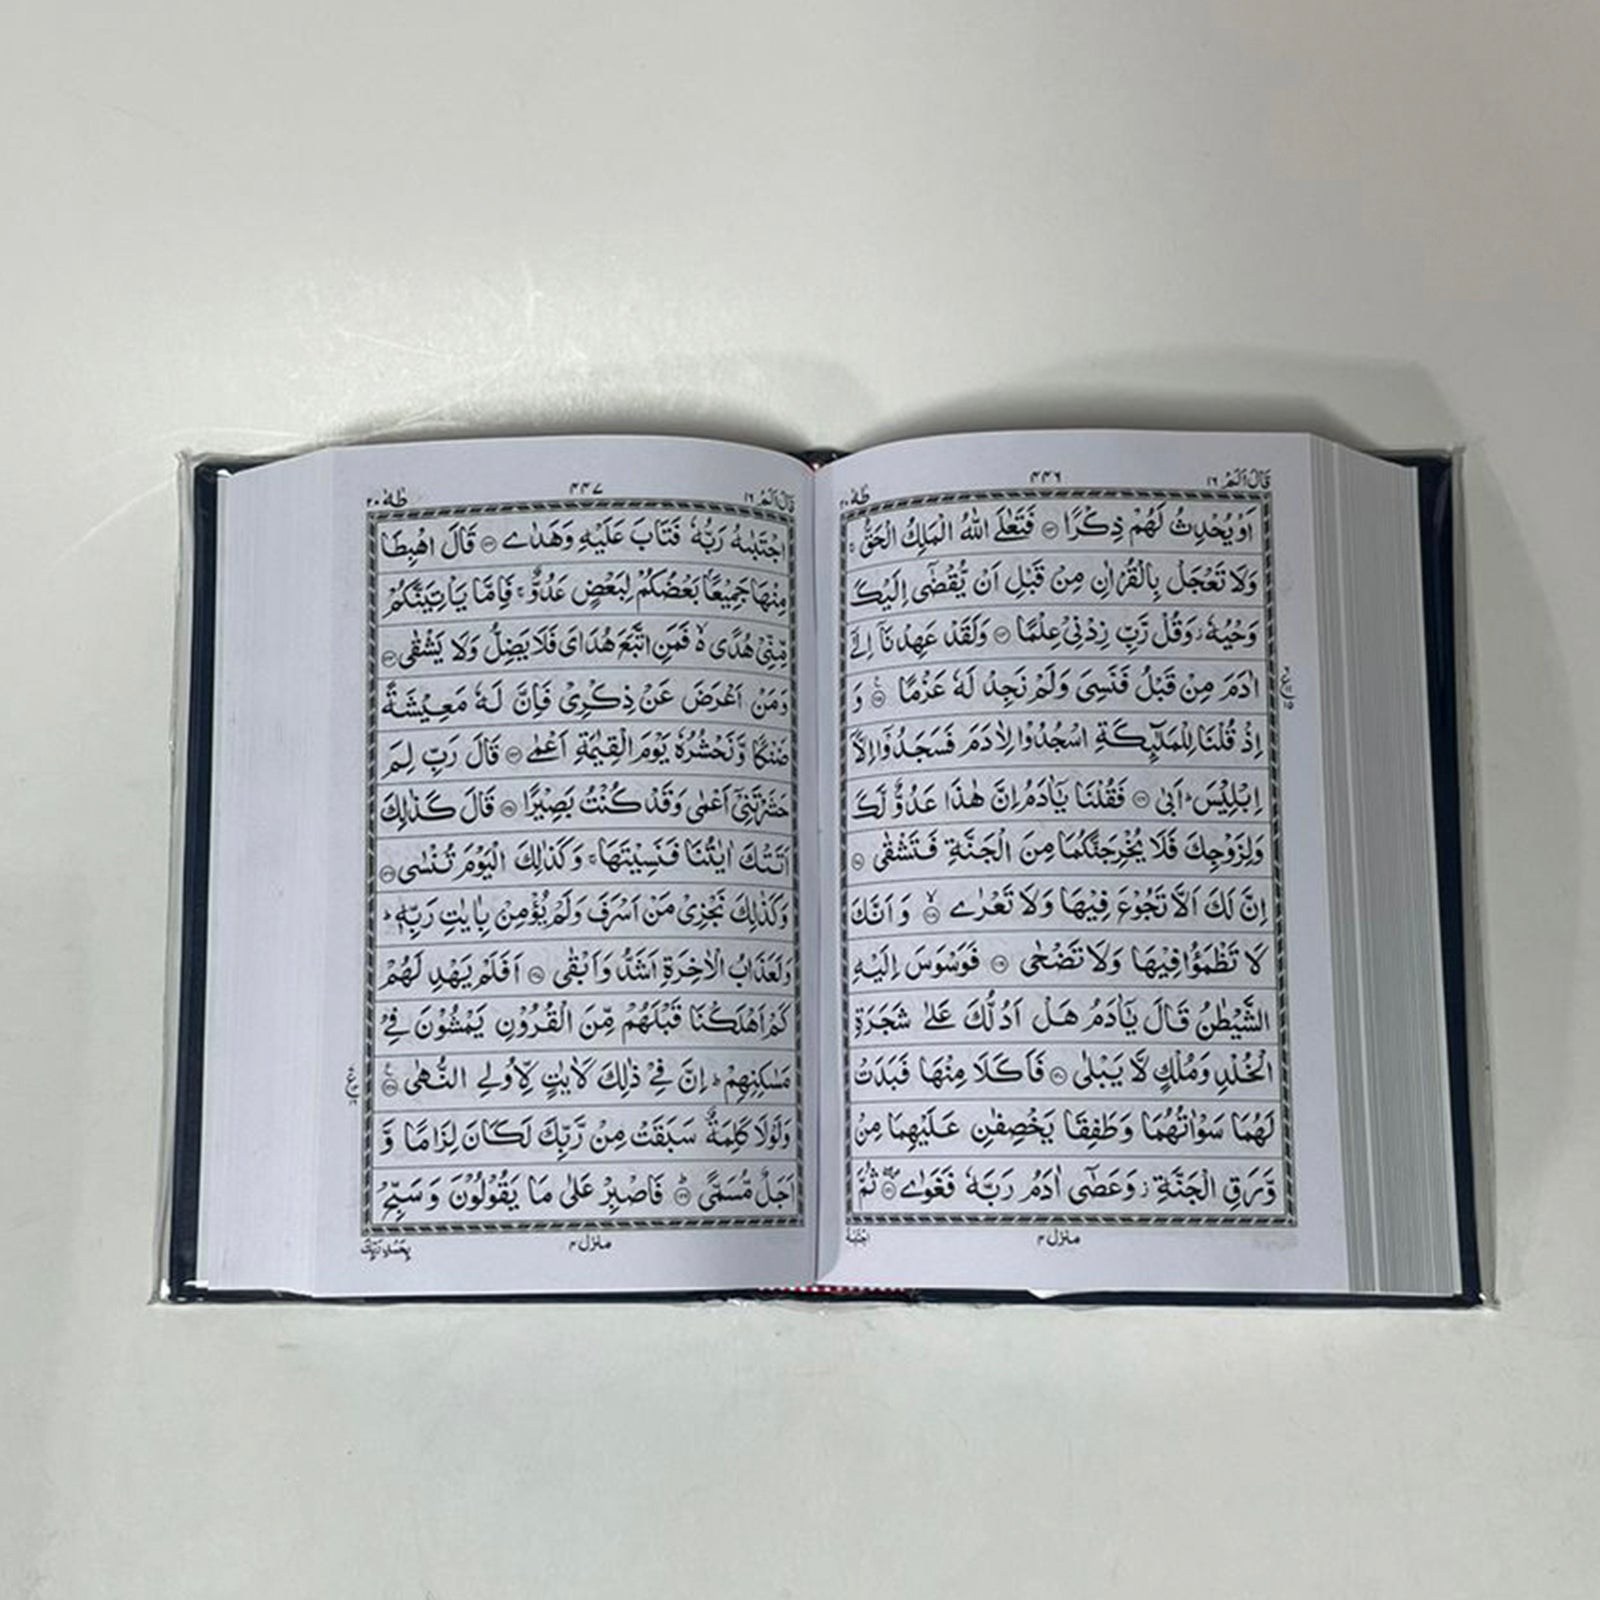 قَالَ اَلَمْ ١٦
۴۴۶
طٰهٰ ٢٠
اَوْ يُحْدِثُ لَهُمْ ذِكْرًا ۝١١٣ فَتَعٰلَى اللّٰهُ الْمَلِكُ الْحَقُّ ۚ
وَلَا تَعْجَلْ بِالْقُرْاٰنِ مِنْ قَبْلِ اَنْ يُّقْضٰٓى اِلَيْكَ
وَحْيُهٗ ؗ وَقُلْ رَّبِّ زِدْنِيْ عِلْمًا ۝١١٤ وَلَقَدْ عَهِدْنَآ اِلٰٓى
اٰدَمَ مِنْ قَبْلُ فَنَسِيَ وَلَمْ نَجِدْ لَهٗ عَزْمًا ۝١١٥ وَ
اِذْ قُلْنَا لِلْمَلٰٓئِكَةِ اسْجُدُوْا لِاٰدَمَ فَسَجَدُوْٓا اِلَّآ
اِبْلِيْسَ ؕ اَبٰى ۝١١٦ فَقُلْنَا يٰٓاٰدَمُ اِنَّ هٰذَا عَدُوٌّ لَّكَ
وَلِزَوْجِكَ فَلَا يُخْرِجَنَّكُمَا مِنَ الْجَنَّةِ فَتَشْقٰى ۝١١٧
اِنَّ لَكَ اَلَّا تَجُوْعَ فِيْهَا وَلَا تَعْرٰى ۝١١٨ وَ اَنَّكَ
لَا تَظْمَؤُا فِيْهَا وَلَا تَضْحٰى ۝١١٩ فَوَسْوَسَ اِلَيْهِ
الشَّيْطٰنُ قَالَ يٰٓاٰدَمُ هَلْ اَدُلُّكَ عَلٰى شَجَرَةِ
الْخُلْدِ وَمُلْكٍ لَّا يَبْلٰى ۝١٢٠ فَاَكَلَا مِنْهَا فَبَدَتْ
لَهُمَا سَوْاٰتُهُمَا وَطَفِقَا يَخْصِفٰنِ عَلَيْهِمَا مِنْ
وَّرَقِ الْجَنَّةِ ؗ وَعَصٰٓى اٰدَمُ رَبَّهٗ فَغَوٰى ۝١٢١ ثُمَّ
منزل ۴
اجْتَبٰهُ
قَالَ اَلَمْ ١٦
۴۴۷
طٰهٰ ٢٠
اجْتَبٰهُ رَبُّهٗ فَتَابَ عَلَيْهِ وَهَدٰى ۝١٢٢ قَالَ اهْبِطَا
مِنْهَا جَمِيْعًۢا بَعْضُكُمْ لِبَعْضٍ عَدُوٌّ ۚ فَاِمَّا يَاْتِيَنَّكُمْ
مِّنِّيْ هُدًى ۙ۬ فَمَنِ اتَّبَعَ هُدَايَ فَلَا يَضِلُّ وَلَا يَشْقٰى ۝١٢٣
وَمَنْ اَعْرَضَ عَنْ ذِكْرِيْ فَاِنَّ لَهٗ مَعِيْشَةً
ضَنْكًا وَّنَحْشُرُهٗ يَوْمَ الْقِيٰمَةِ اَعْمٰى ۝١٢٤ قَالَ رَبِّ لِمَ
حَشَرْتَنِيْٓ اَعْمٰى وَقَدْ كُنْتُ بَصِيْرًا ۝١٢٥ قَالَ كَذٰلِكَ
اَتَتْكَ اٰيٰتُنَا فَنَسِيْتَهَا ۚ وَكَذٰلِكَ الْيَوْمَ تُنْسٰى ۝١٢٦
وَكَذٰلِكَ نَجْزِيْ مَنْ اَسْرَفَ وَلَمْ يُؤْمِنْۢ بِاٰيٰتِ رَبِّهٖ ؕ
وَلَعَذَابُ الْاٰخِرَةِ اَشَدُّ وَاَبْقٰى ۝١٢٧ اَفَلَمْ يَهْدِ لَهُمْ
كَمْ اَهْلَكْنَا قَبْلَهُمْ مِّنَ الْقُرُوْنِ يَمْشُوْنَ فِيْ
مَسٰكِنِهِمْ ؕ اِنَّ فِيْ ذٰلِكَ لَاٰيٰتٍ لِّاُولِي النُّهٰى ۝١٢٨
وَلَوْلَا كَلِمَةٌ سَبَقَتْ مِنْ رَّبِّكَ لَكَانَ لِزَامًا وَّ
اَجَلٌ مُّسَمًّى ۝١٢٩ فَاصْبِرْ عَلٰى مَا يَقُوْلُوْنَ وَ سَبِّحْ
منزل ۴
بِحَمْدِ رَبِّكَ